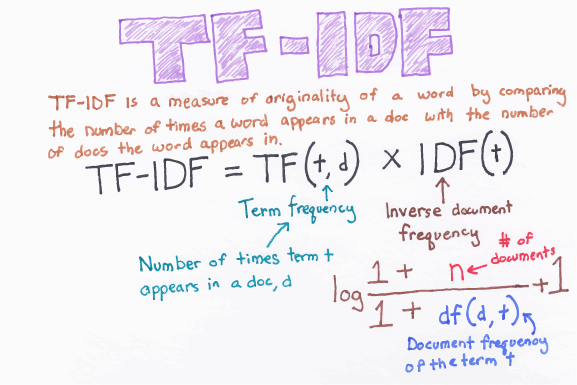 TF-IDF
TF-IDF is a measure of originality of a word by comparing
the number of times a word appears in a doc with the number
of docs the word appears in.
TF-IDF = TF(t, d) × IDF(t)
Term frequency
Inverse document
frequency
Number of times term t
appears in a doc, d
# of
documents
log 1 + n
1 + df(d, t) + 1
Document frequency
of the term t